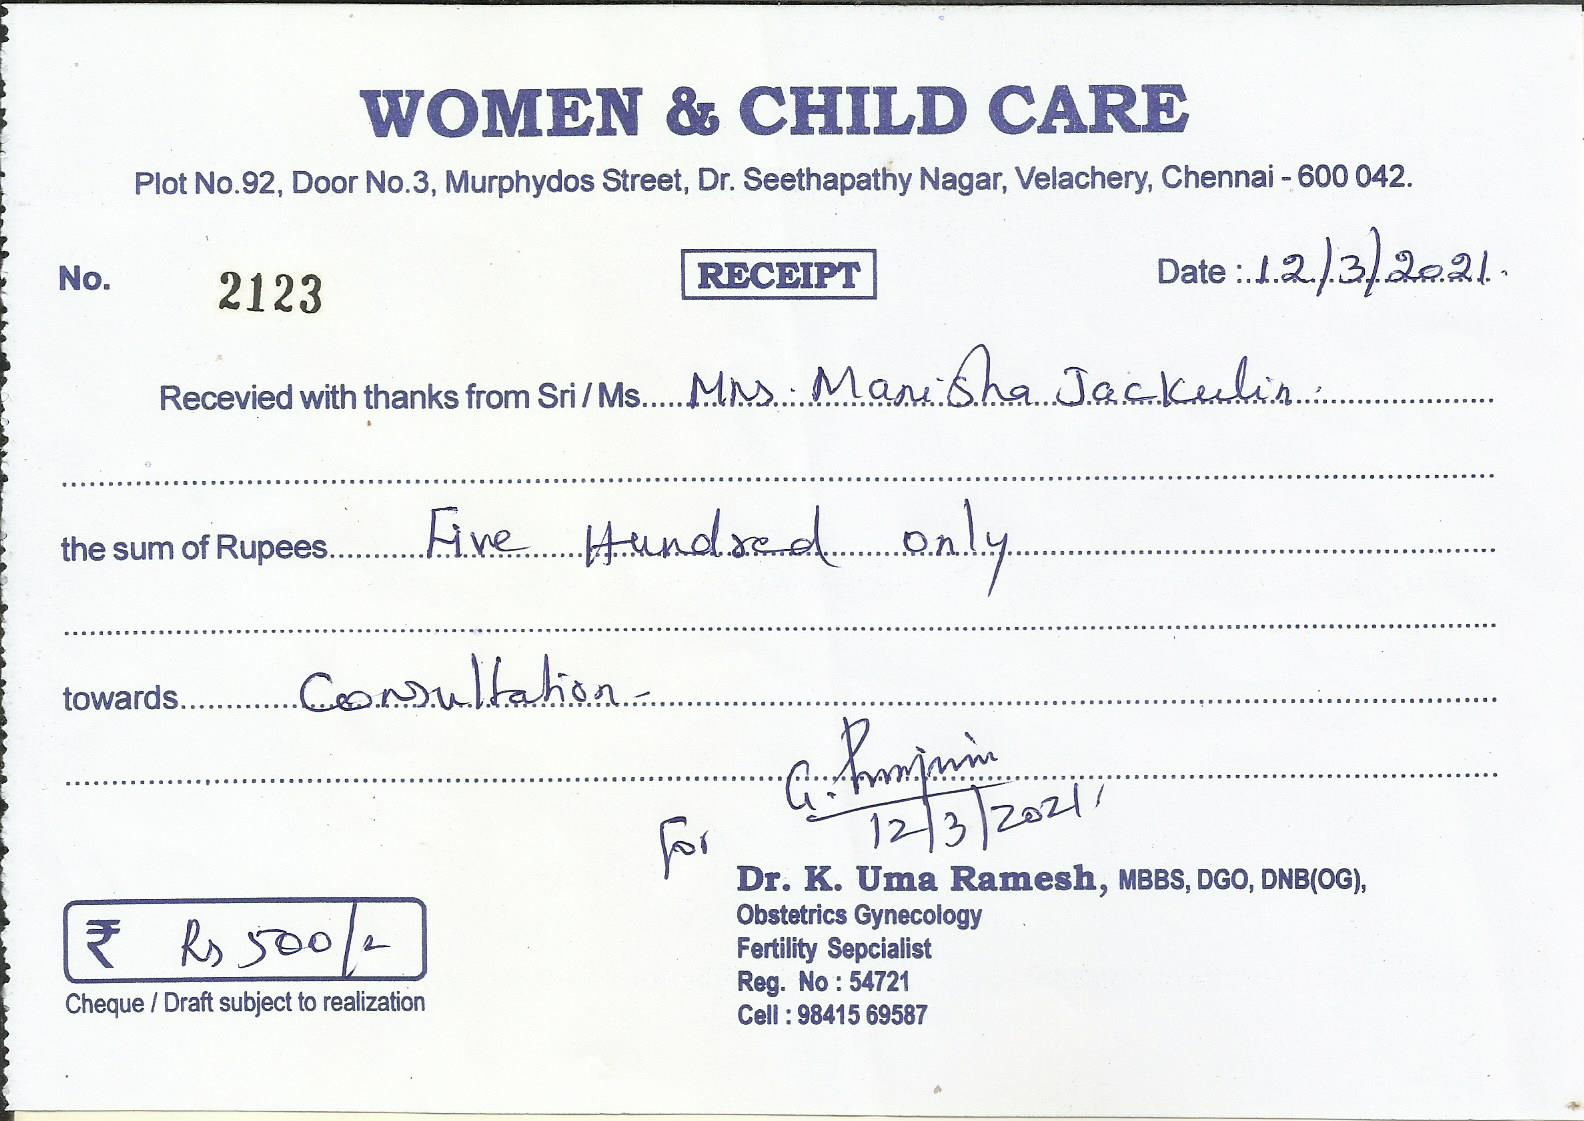 WOMEN & CHILD CARE
Plot No.92, Door No.3, Murphydos Street, Dr. Seethapathy Nagar, Velachery, Chennai - 600 042.
No. 2123 RECEIPT Date : 12/3/2021.
Recevied with thanks from Sri / Ms. Mrs. Manisha Jackulin.
the sum of Rupees Five Hundred only
towards Consultation -
12/3/2021
For
Dr. K. Uma Ramesh, MBBS, DGO, DNB(OG),
Obstetrics Gynecology
Fertility Sepcialist
Reg. No : 54721
Cell : 98415 69587
₹ Rs 500/-
Cheque / Draft subject to realization